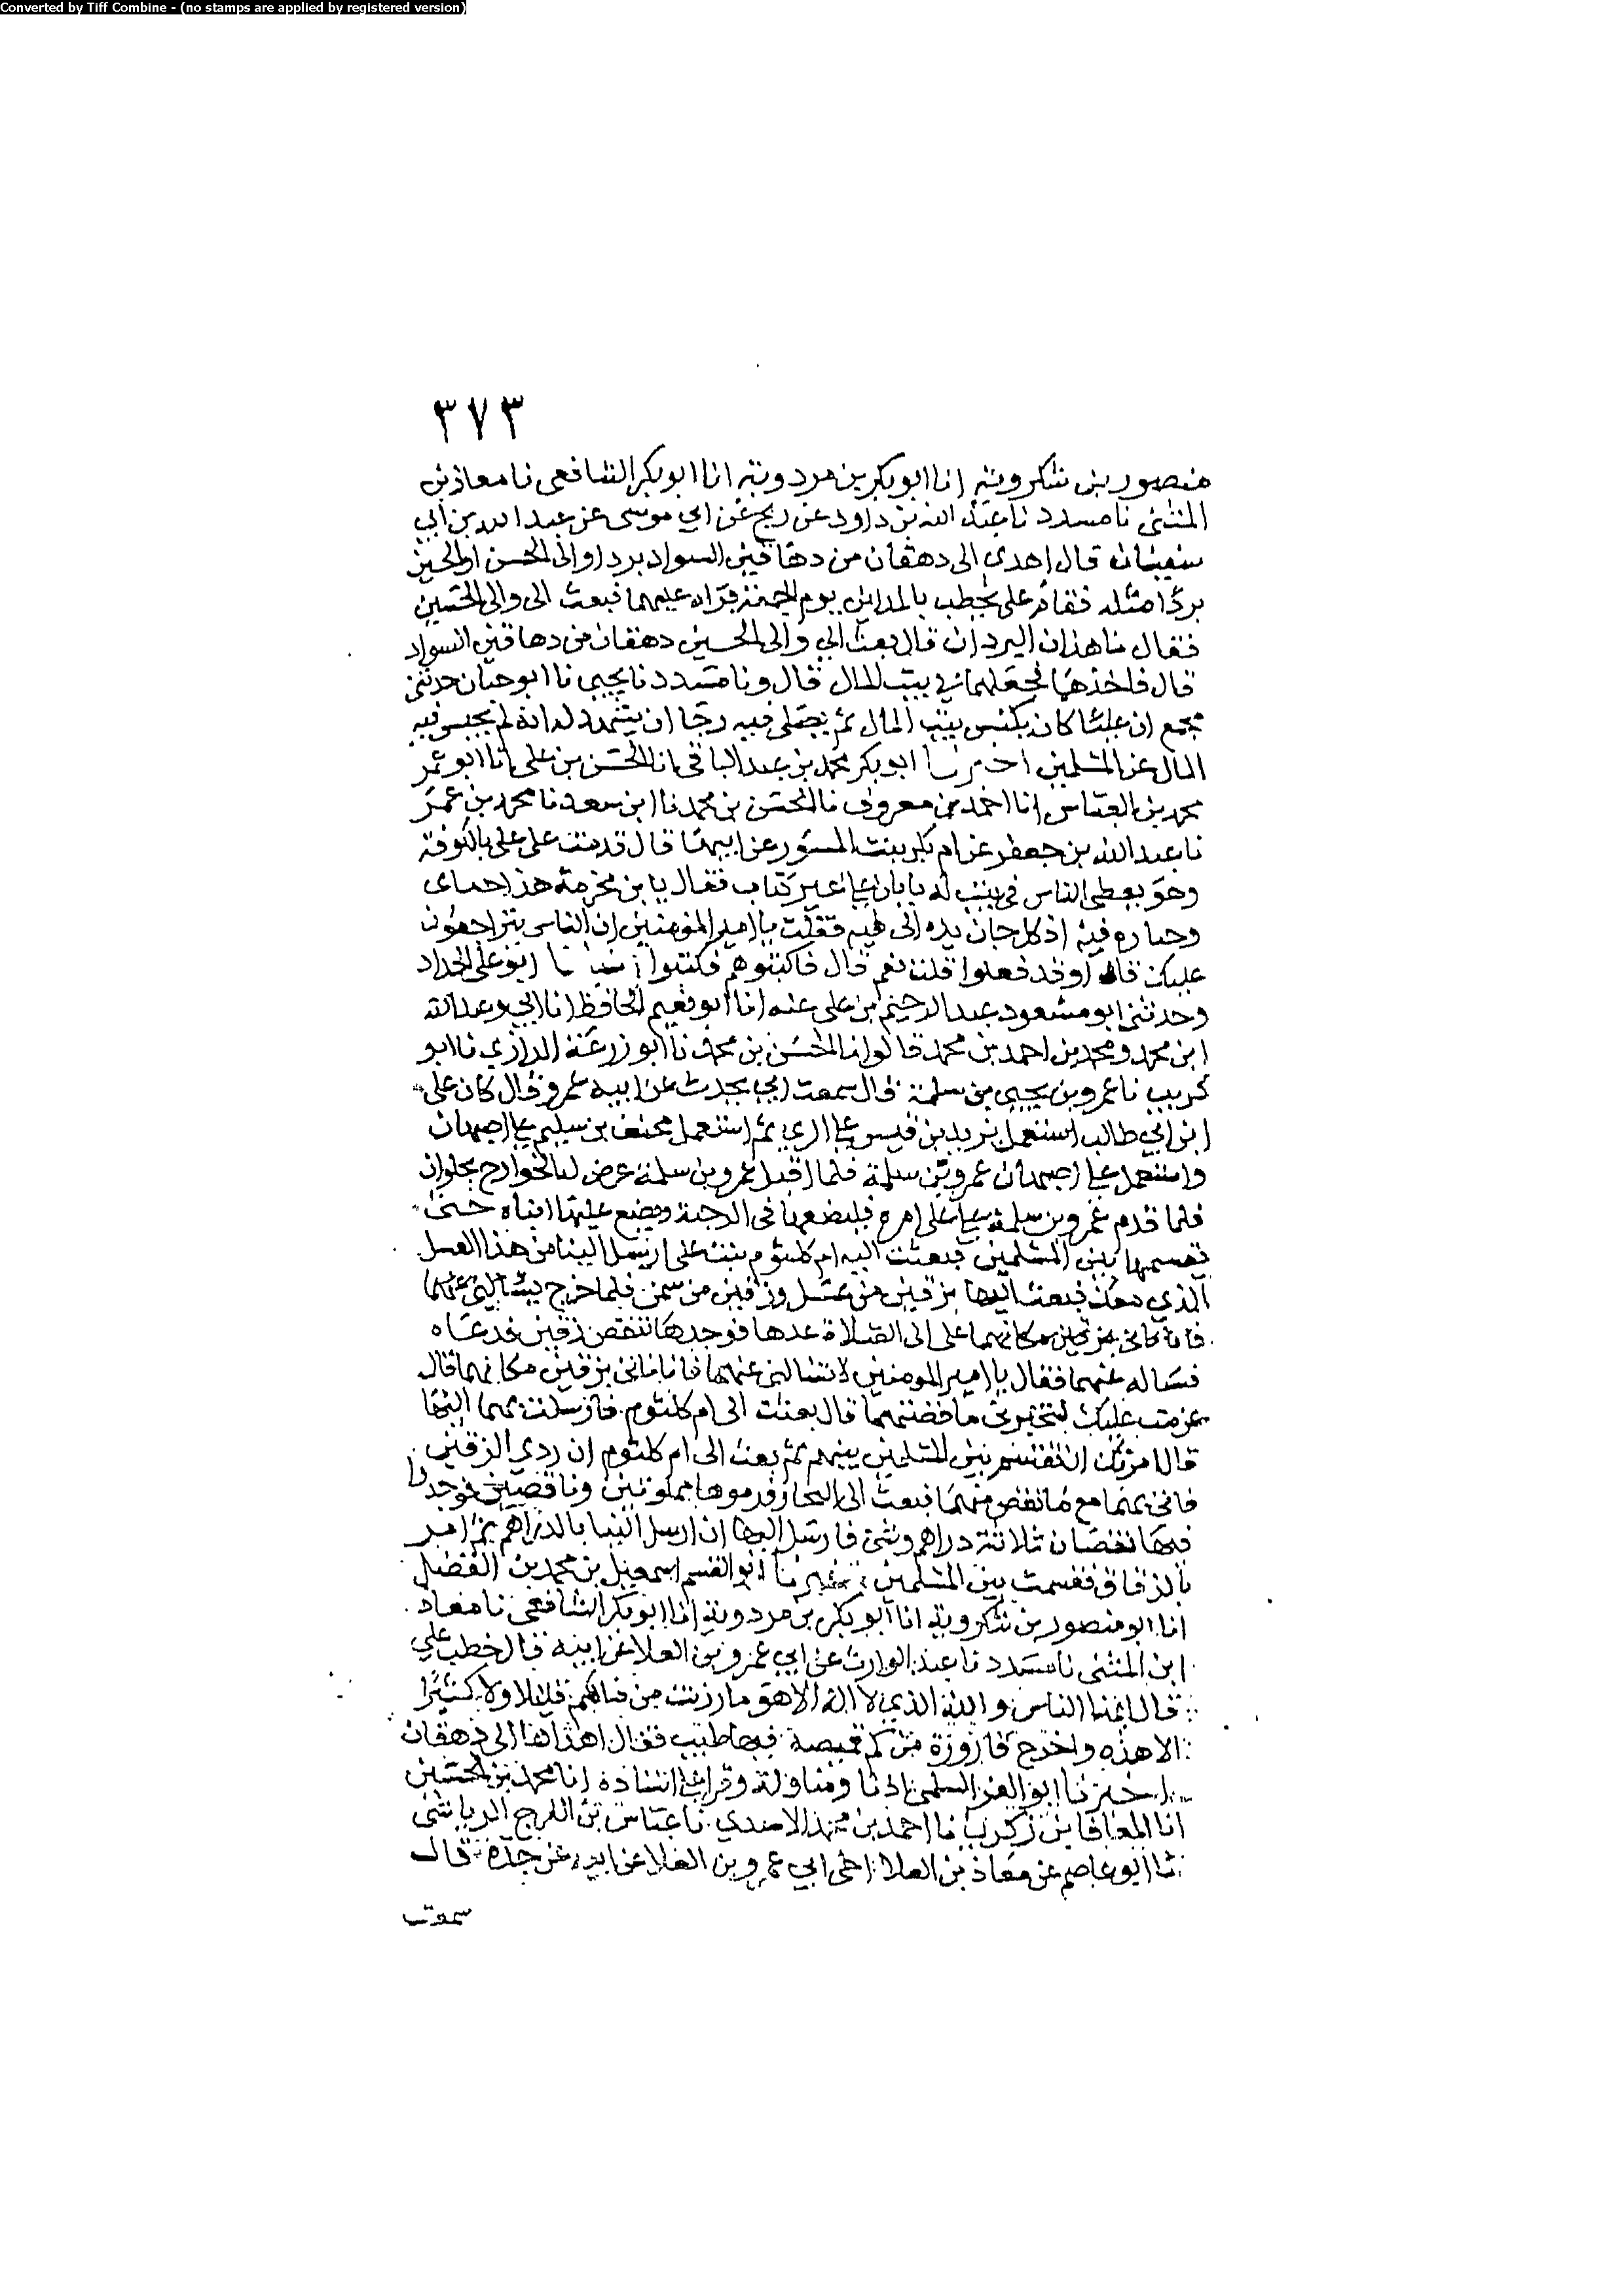 Converted by Tiff Combine - (no stamps are applied by registered version)
٣٧٣
منصور بن شكرويه انا ابو بكر بن مردويه انا ابو بكر الشافعى نا معاذ بن
المثنى نا مسدد نا عبد الله بن داود عن ربيع عن ابي موسى عن عبد الله بن ابي
سفيان قال اهدى الى دهقان من دهاقين السواد بردا والى الحسن او الحسين
بردا مثله فقام على يخطب بالمداين يوم الجمعة فراه عليهما فبعث الى والى الحسين
فقال ما هذان البردان قال بعث الي والى الحسين دهقان من دهاقين السواد
قال فاخذهما فجعلهما في بيت المال قال ونا مسدد نا يحيى نا ابو حيان حدثنى
مجمع ان عليا كان يكنس بيت المال ثم يصلى فيه رجا ان يشهد له انه لم يحبس فيه
المال عن المسلمين اخبرنا ابو بكر محمد بن عبد الباقى انا الحسن بن على انا ابو عمر
محمد بن العباس انا احمد بن معروف نا الحسن بن محمد نا ابن سعد نا محمد بن عمر
نا عبد الله بن جعفر عن ام بكر بنت المسور عن ابيها قال قدمت على على بالكوفة
وهو يعطى الناس فى بيت له بابان على غير كتاب فقال يا بن مخرمة هذا
فيه اذ كل جان يده الى فيه فقلت يا امير المومنين ان الناس يتراجعون
عليك قال اوقد فعلوا قلت نعم قال فاكتبوهم فكتبوا انبانا ابو على الحداد
وحدثنى ابو مسعود عبد الرحيم بن على عنه انا ابو نعيم الحافظ انا ابي وعبد الله
ابن محمد ومحمد بن احمد بن محمد قالوا انا الحسن بن محمد نا ابو زرعة الرازي نا ابو
كريب نا عمرو بن يحيى بن سلمة قال سمعت ابي يحدث عن ابيه عمرو قال كان على
ابن ابي طالب استعمل يزيد بن قيس على الري ثم استعمل مخنف بن سليم على اصبهان
واستعمل على اصبهان عمرو بن سلمة فلما اقبل عمرو بن سلمة عرض له الخوارج بحلوان
فلما قدم عمرو بن سلمة على على امره فليضعها فى الرحبة ويضع عليها ابناه حتى
تقسمها بين المسلمين فبعثت اليه ام كلثوم بنت على ارسل الينا من هذا العسل
الذي معك فبعث اليها بزقين من عسل وزقين من سمن فلما خرج
على الى الصلاة عدها فوجدها تنقص زقين فدعاه
فساله عنهما فقال يا امير المومنين لا تسالنى عنهما فانا ناتى بزقين مكانهما قال
عزمت عليك لتخبرنى ما قضتهما قال بعثت الى ام كلثوم فارسلت بهما اليها
قال امرتك ان تقسم بين المسلمين بينهم ثم بعث الى ام كلثوم ان ردي الزقين
فاتى بهما مع ما نقص منهما فبعث الى التجار قوموها مملوتين وناقصين فوجدوا
فيها نقصان ثلاثة دراهم وشى فارسل اليها ان ارسل الينا بالدراهم ثم امر
بالزقاق فقسمت بين المسلمين اخبرنا ابو القسم اسمعيل بن محمد بن الفضل
انا ابو منصور بن شكرويه انا ابو بكر بن مردويه انا ابو بكر الشافعى نا معاذ
ابن المثنى نا مسدد نا عبد الوارث عن ابي عمرو بن العلا عن ابيه قال خطب علي
قال ايها الناس والله الذي لا اله الا هو ما رزئت من فياكم قليلا ولا كثيرا
الا هذه واخرج قارورة من كم قميصه فيها طيب فقال اهداها الى دهقان
اخبرنا ابو العز السلمى اذنا ومناولة وقرا على اسناده انا محمد بن الحسين
انا المعافا بن زكريا نا احمد بن محمد الاسدي نا عباس بن الفرج الرياشى
نا ابو عاصم عن معاذ بن العلا اخى ابي عمرو بن العلا عن ابيه عن جده قال
سمعت